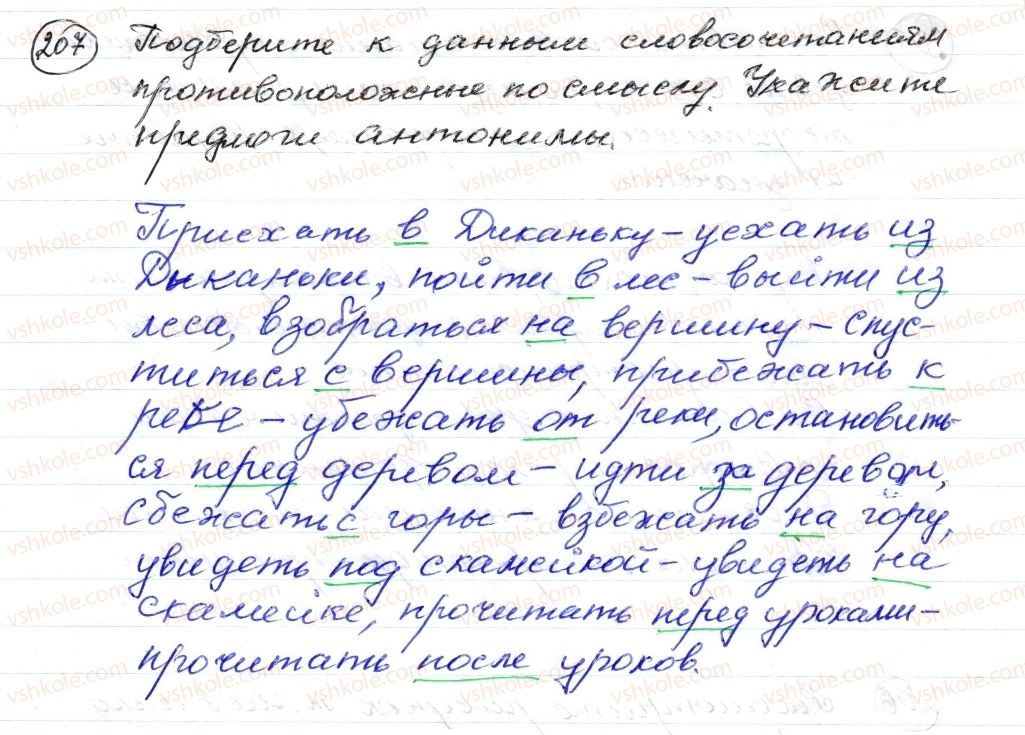 207 Подберите к данным словосочетаниям
противоположные по смыслу. Укажите
предлоги антонимы.
Приехать в Диканьку – уехать из
Диканьки, пойти в лес – выйти из
леса, взобраться на вершину – спус-
титься с вершины, прибежать к
реке – убежать от реки, остановить-
ся перед деревом – идти за деревом,
сбежать с горы – взбежать на гору,
увидеть под скамейкой – увидеть на
скамейке, прочитать перед уроками –
прочитать после уроков.